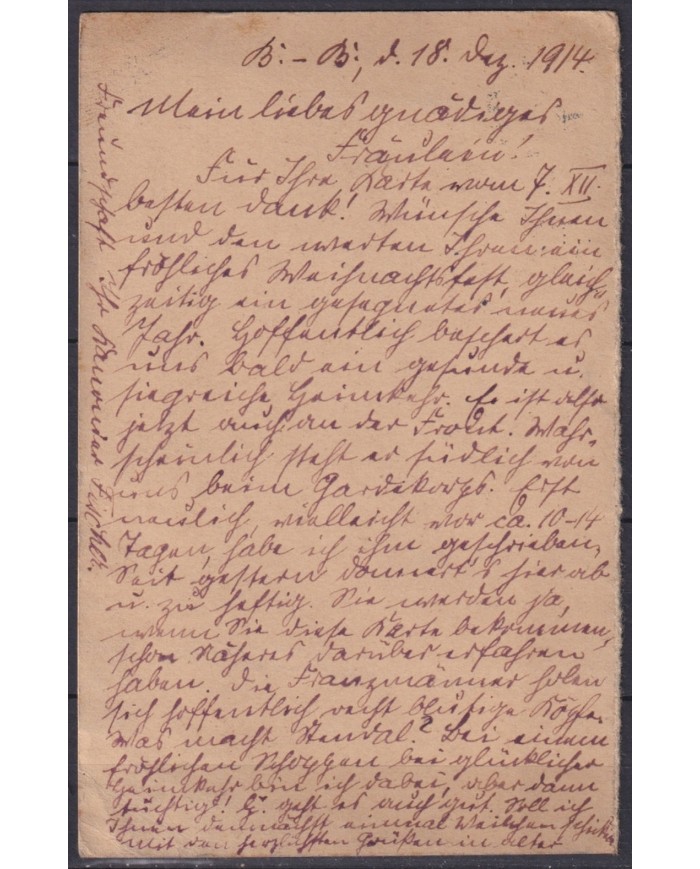 B. – B., d. 18. Dez. 1914.
Mein liebes gnädiges
Fräulein!
Für Ihre Karte vom 7. XII.
besten Dank! Wünsche Ihnen
und den werten Ihren ein
fröhliches Weihnachtsfest, gleich-
zeitig ein gesegnetes neues
Jahr. Hoffentlich beschert es
uns bald ein gesunde u.
siegreiche Heimkehr. Er ist also
jetzt auch an der Front. Wahr-
scheinlich steht er südlich von
uns beim Gardekorps. Erst
neulich, vielleicht vor ca. 10-14
Tagen, habe ich ihm geschrieben.
Seit gestern donnert's hier ab
u. zu heftig. Sie werden ja,
wenn Sie diese Karte bekommen,
schon Näheres darüber erfahren
haben. Die Franzmänner holen
sich hoffentlich recht blutige Köpfe.
Was macht Stendal? Bei einem
fröhlichen Schoppen bei glücklicher
Heimkehr bin ich dabei, aber dann
tüchtig! geht es auch gut. Soll ich
Ihnen demnächst einmal Weilchen schicken
Mit den herzlichsten Grüßen in alter
Freundschaft Ihr Kanonier Fischer.